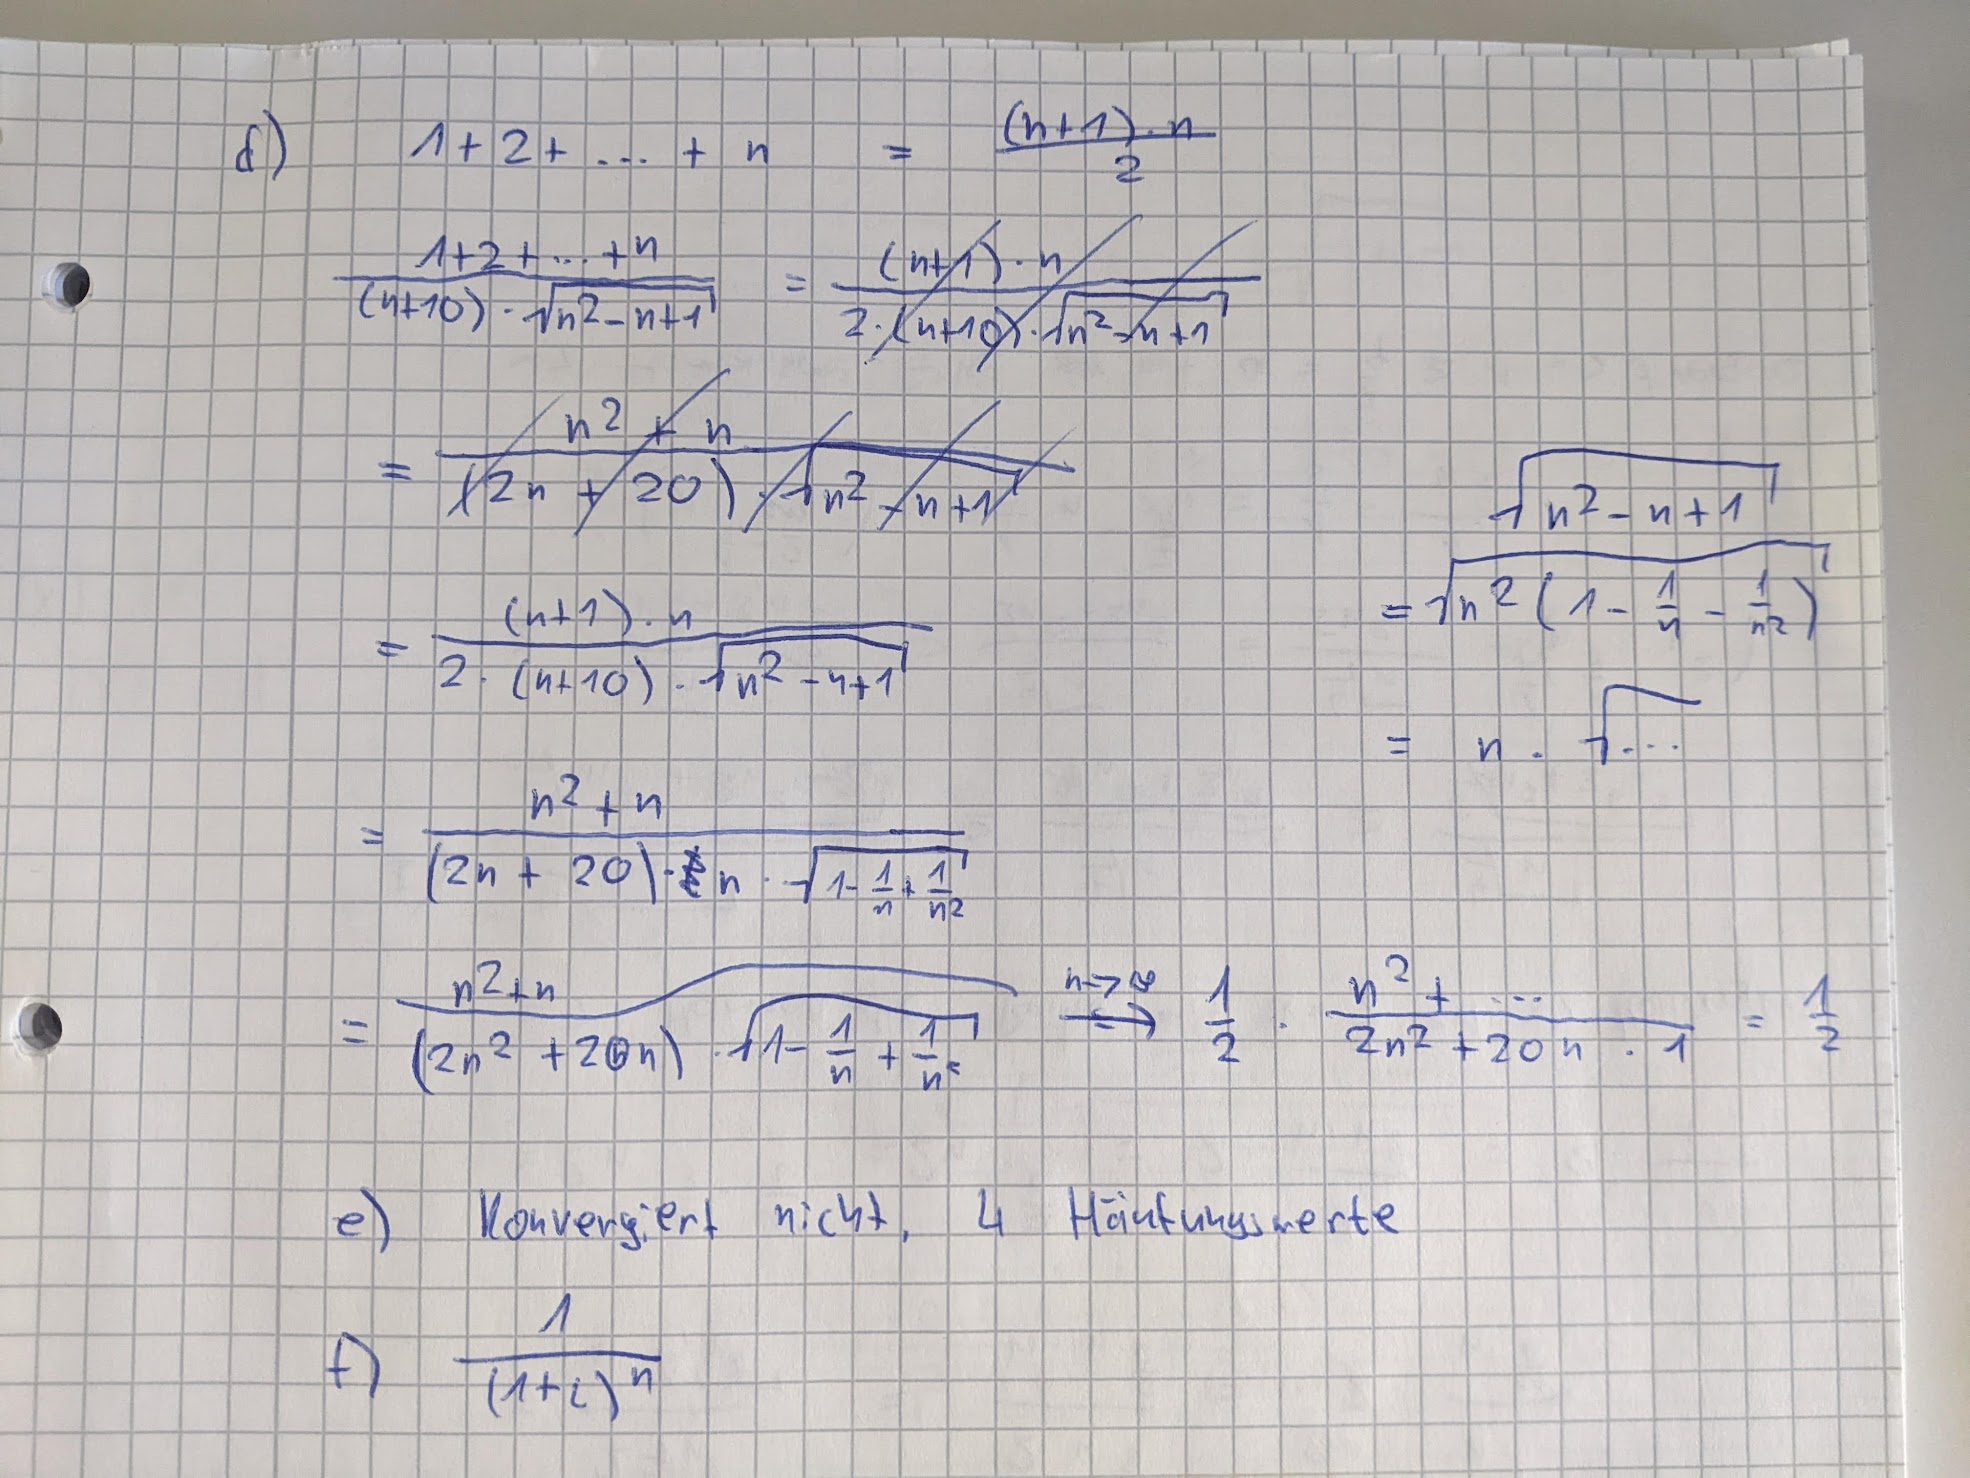 d) 1+2+ ... + n = (n+1)·n / 2
(1+2+...+n) / ((n+10)·√(n²-n+1)) = ((n+1)·n) / (2·(n+10)·√(n²-n+1))
= (n² + n) / ((2n + 20)·√(n² - n+1))
√(n² - n + 1)
= √(n² (1 - 1/n - 1/n²))
= ((n+1)·n) / (2·(n+10)·√(n² - n+1))
= n · √...
= (n² + n) / ((2n + 20)· n · √(1 - 1/n + 1/n²))
= (n²+n) / ((2n² + 20n) · √(1 - 1/n + 1/n²)) n→∞ → 1/2 · (n² + ...) / (2n² + 20n · 1) = 1/2
e) Konvergiert nicht, 4 Häufungswerte
f) 1 / (1+i)ⁿ